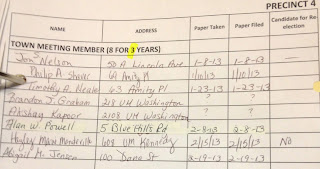 PRECINCT 4
NAME ADDRESS Paper Taken Paper Filed Candidate for Re-election
TOWN MEETING MEMBER (8 FOR 3 YEARS)
Jon Nelson 50 A Lincoln Ave. 1-8-13 1-8-13
Philip A 61 Amity Pl 1/10/13 1/10/13
Timothy A. Neale 63 Amity Pl 1-23-13 1-23-13
Brandon J. Graham 218 UM Washington ? ?
Akshay Kapoor 2108 UM Washington ? ?
Alan W. Powell 5 Blue Hills Rd 2-8-13 2-8-13
608 UM Kennedy 2/15/13 2/15/13 No
Abigail M. Jensen 100 Dana St 3-19-13 3-19-13